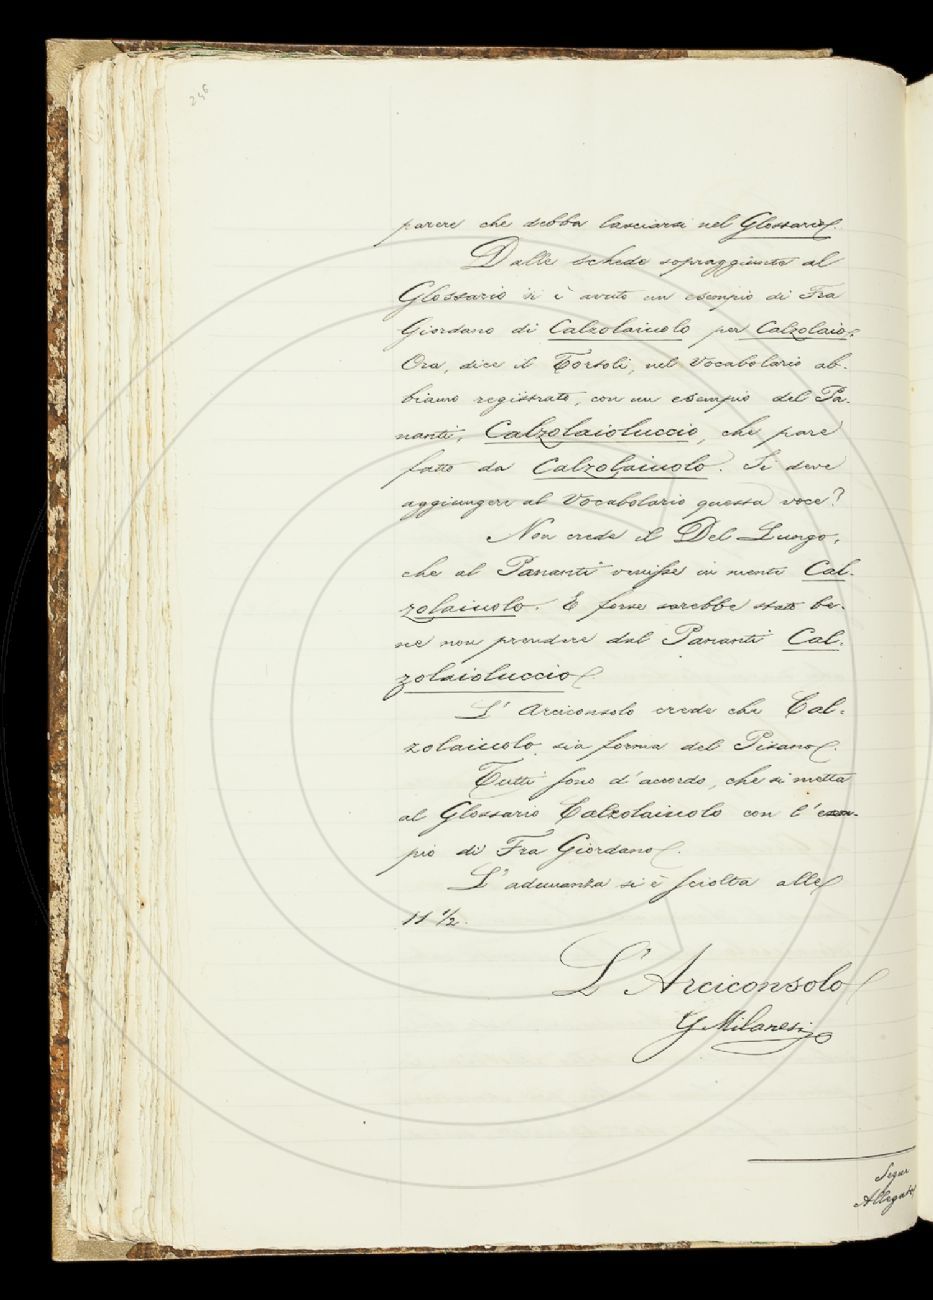 246
parere che debba lasciarsi nel Glossario.
Dalle schede sopraggiunte al
Glossario si è avuto un esempio di Fra
Giordano di Calzolaiuolo per Calzolaio.
Ora, dice il Tortoli, nel Vocabolario ab-
biamo registrato, con un esempio del Pa-
nanti, Calzolaioluccio, che pare
fatto da Calzolaiuolo. Si deve
aggiungere al Vocabolario questa voce?
Non crede il Del Lungo,
che al Pananti venisse in mente Cal-
zolaiuolo. E forse sarebbe stato be-
ne non prendere dal Pananti Cal-
zolaioluccio.
L'Arciconsolo crede che Cal-
zolaiuolo sia forma del Pisano.
Tutti sono d'accordo, che si metta
al Glossario Calzolaiuolo con l'esem-
pio di Fra Giordano.
L'adunanza si è sciolta alle
11 1/2.
L'Arciconsolo
G Milanesi
Segue
Allegato